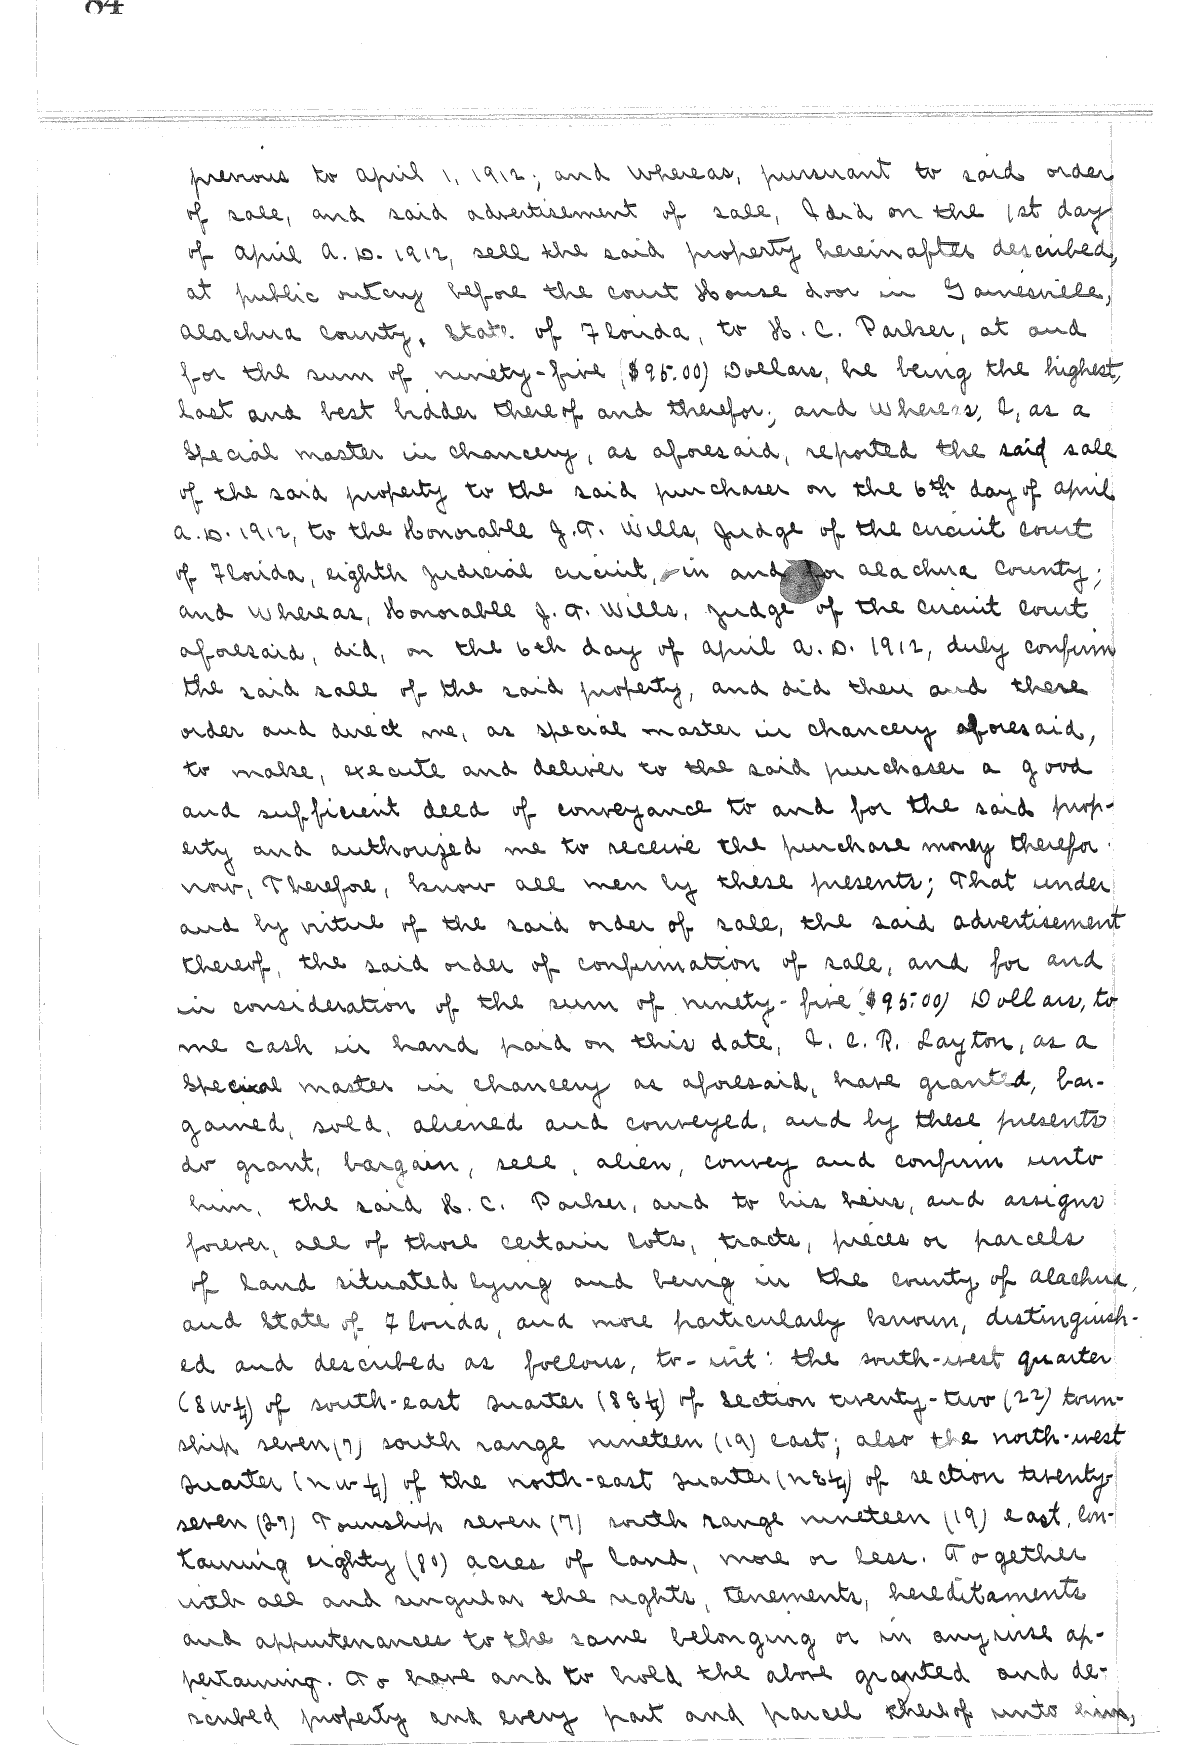 84
previous to april 1, 1912; and whereas, pursuant to said order
of sale, and said advertisement of sale, I did on the 1st day
of april A.D. 1912, sell the said property hereinafter described,
at public outcry before the court House door in Gainesville,
alachua county, State of Florida, to H. C. Parker, at and
for the sum of ninety-five ($95.00) Dollars, he being the highest,
last and best bidder thereof and therefor; and whereas, I, as a
Special master in chancery, as aforesaid, reported the said sale
of the said property to the said purchaser on the 6th day of april
A.D. 1912, to the Honorable J. T. Wills, Judge of the circuit court
of Florida, eighth judicial circuit, in and for alachua county;
and whereas, Honorable J. T. Wills, judge of the circuit court
aforesaid, did, on the 6th day of april A.D. 1912, duly confirm
the said sale of the said property, and did then and there
order and direct me, as special master in chancery aforesaid,
to make, execute and deliver to the said purchaser a good
and sufficient deed of conveyance to and for the said prop-
erty and authorized me to receive the purchase money therefor.
now, Therefore, know all men by these presents; That under
and by virtue of the said order of sale, the said advertisement
thereof, the said order of confirmation of sale, and for and
in consideration of the sum of ninety-five ($95.00) Dollars, to
me cash in hand paid on this date, I. C. R. Layton, as a
Special master in chancery as aforesaid, have granted, bar-
gained, sold, aliened and conveyed, and by these presents
do grant, bargain, sell, alien, convey and confirm unto
him, the said H. C. Parker, and to his heirs, and assigns
forever, all of those certain lots, tracts, pieces or parcels
of land situated lying and being in the county of alachua,
and State of Florida, and more particularly known, distinguish-
ed and described as follows, to-wit: the south-west quarter
(SW¼) of south-east quarter (SE¼) of Section twenty-two (22) town-
ship seven (7) south range nineteen (19) east; also the north-west
quarter (NW¼) of the north-east quarter (NE¼) of section twenty-
seven (27) Township seven (7) south range nineteen (19) east, con-
taining eighty (80) acres of land, more or less. Together
with all and singular the rights, tenements, hereditaments
and appurtenances to the same belonging or in anywise ap-
pertaining. To have and to hold the above granted and de-
scribed property and every part and parcel thereof unto him,